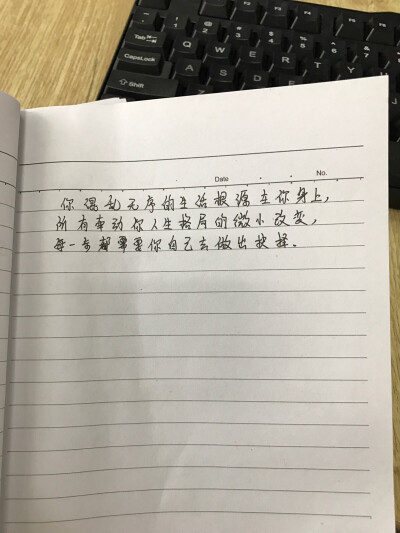 Tab
CapsLock
Shift
Q W E R T Y
A S D
Date No.
你混乱无序的生活根源在你身上，
所有牵动你人生格局的微小改变，
每一步都需要你自己去做出抉择。